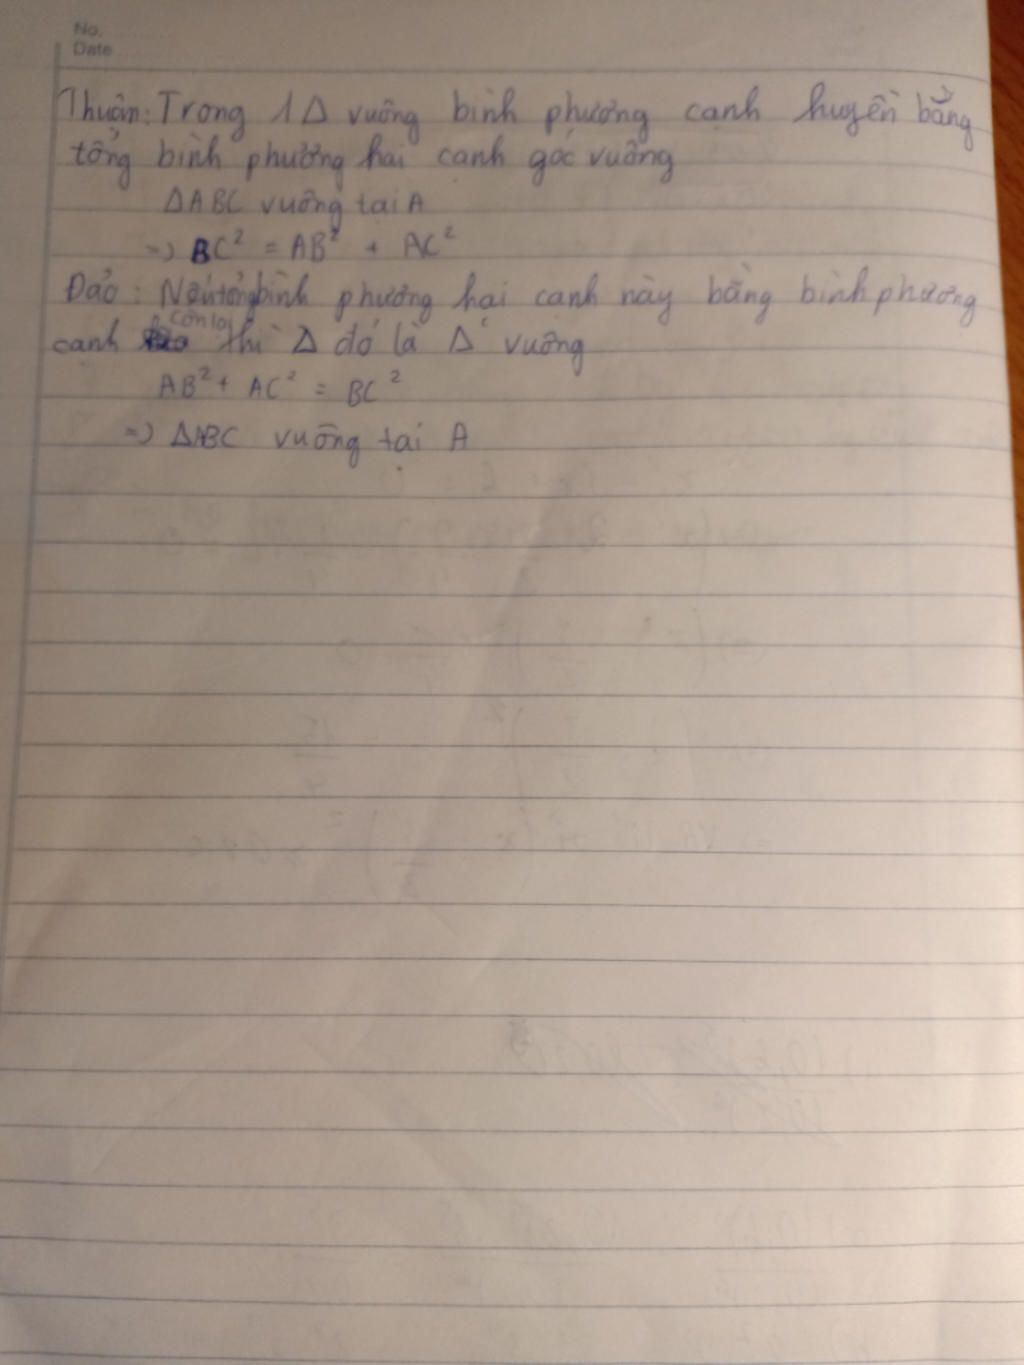 No.
Date
Thuận: Trong 1 Δ vuông bình phương cạnh huyền bằng
tổng bình phương hai cạnh góc vuông
ΔABC vuông tại A
=> BC² = AB² + AC²
Đảo: Nếu tổng bình phương hai cạnh này bằng bình phương
còn lại
cạnh thì Δ đó là Δ vuông
AB² + AC² = BC²
=> ΔABC vuông tại A